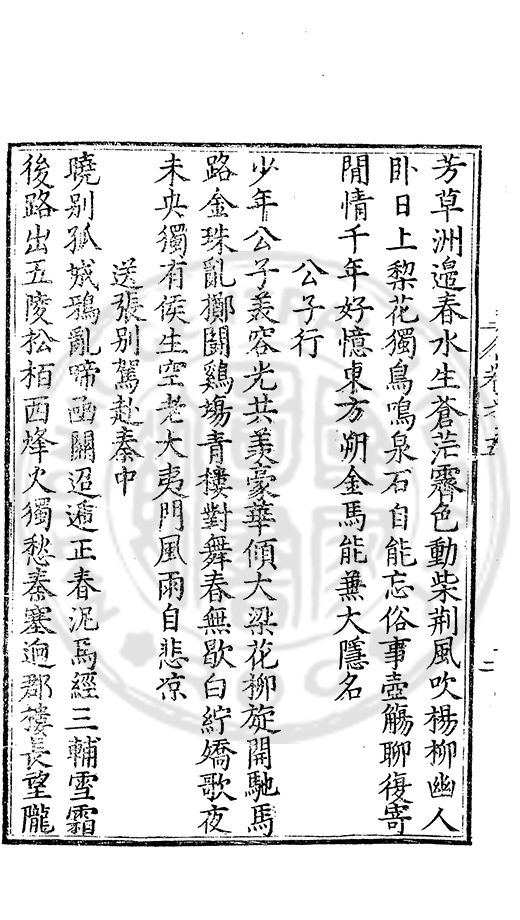 芳草洲邉春水生蒼茫霽色動柴荆風吹楊柳幽人
卧日上梨花獨鳥鳴泉石自能忘俗事壺觴聊復寄
閒情千年好憶東方朔金馬能兼大隱名
公子行
少年公子羙容光共羡豪華傾大梁花柳旋開馳馬
路金珠亂擲鬪鷄塲青樓對舞春無歇白紵嬌歌夜
未央獨有侯生空老大夷門風雨自悲凉
送張别駕赴秦中
曉别孤城鴉亂啼函關迢遞正春泥馬經三輔雪霜
後路出五陵松栢西烽火獨愁秦塞逈郡樓長望隴